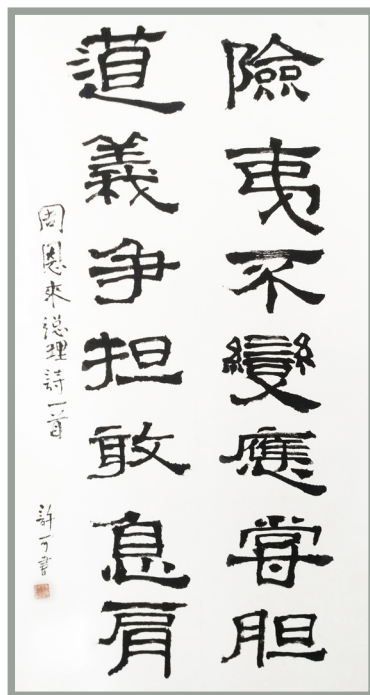 險夷不變應嘗胆
道義争担敢息肩
周恩來總理詩一首
許可書